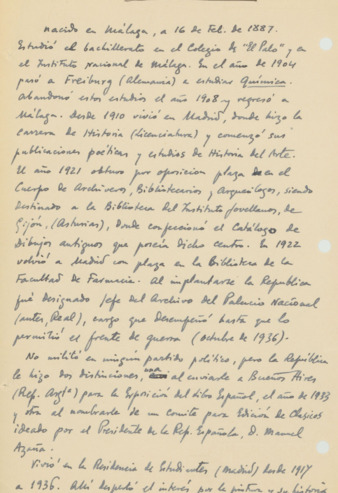 nacido en Málaga, a 16 de Feb. de 1887.
Estudió el bachillerato en el Colegio de "El Palo" y en
el Instituto nacional de Málaga. En el año de 1904
pasó a Freiburg (Alemania) a estudiar Química.
Abandonó estos estudios el año 1908 y regresó a
Málaga. Desde 1910 vivió en Madrid, donde hizo la
carrera de Historia (Licenciatura) y comenzó sus
publicaciones poéticas y estudios de Historia del Arte.
El año 1921 obtuvo por oposicion plaza en el
Cuerpo de Archiveros, Bibliotecarios y Arqueólogos, siendo
destinado a la Biblioteca del Instituto Jovellanos, de
Gijón, (Asturias), donde confeccionó el Catálogo de
dibujos antiguos que poseía dicho centro. En 1922
volvió a Madrid con plaza en la Biblioteca de la
Facultad de Farmacia. Al implantarse la Republica
fué designado Jefe del Archivo del Palacio Nacional
(antes, Real), cargo que desempeñó hasta que lo
permitió el frente de guerra (octubre de 1936).
No militó en ningun partido politico, pero la República
le hizo dos distinciones, una al enviarle a Buenos Aires
(Rep. Argª) para la Exposición del Libro Español, el año de 1933
y otra el nombrarle de un comité para Edición de Clasicos
ideado por el Presidente de la Rep. Española, D. Manuel
Azaña.
Vivió en la Residencia de Estudiantes (Madrid) desde 1917
a 1936. Allí despertó el interés por la pintura y su historia